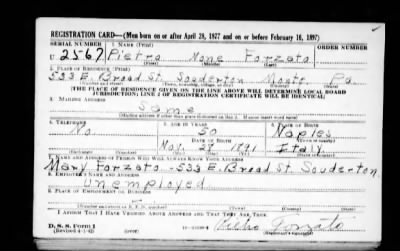 REGISTRATION CARD—(Men born on or after April 28, 1877 and on or before February 16, 1897)
SERIAL NUMBER 1. NAME (Print)
U 2567 Pietro None Forzato
(First) (Middle) (Last)
2. PLACE OF RESIDENCE (Print)
533 E. Broad St. Souderton Montg. Pa.
[THE PLACE OF RESIDENCE GIVEN ON THE LINE ABOVE WILL DETERMINE LOCAL BOARD
JURISDICTION; LINE 2 OF REGISTRATION CERTIFICATE WILL BE IDENTICAL]
3. MAILING ADDRESS
Same
4. TELEPHONE 5. AGE IN YEARS 6. PLACE OF BIRTH
No 50 Naples
DATE OF BIRTH
Nov. 1891 Italy
(Exchange) (Number) (Mo.) (Day) (Yr.)
7. NAME AND ADDRESS OF PERSON WHO WILL ALWAYS KNOW YOUR ADDRESS
Mary Forzato - 533 E. Broad St. Souderton
8. EMPLOYER'S NAME AND ADDRESS
Unemployed
9. PLACE OF EMPLOYMENT OR BUSINESS
I AFFIRM THAT I HAVE VERIFIED ABOVE ANSWERS AND THAT THEY ARE TRUE.
D. S. S. Form 1
(Revised 4-1-42) Pietro Forzato